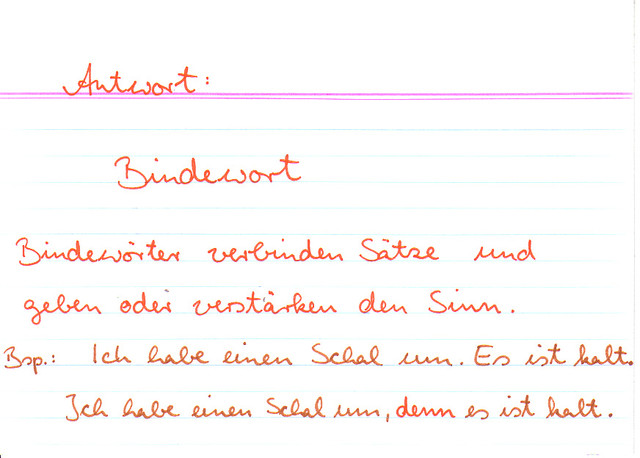 Antwort:
Bindewort
Bindewörter verbinden Sätze und
geben oder verstärken den Sinn.
Bsp.: Ich habe einen Schal um. Es ist kalt.
Ich habe einen Schal um, denn es ist kalt.